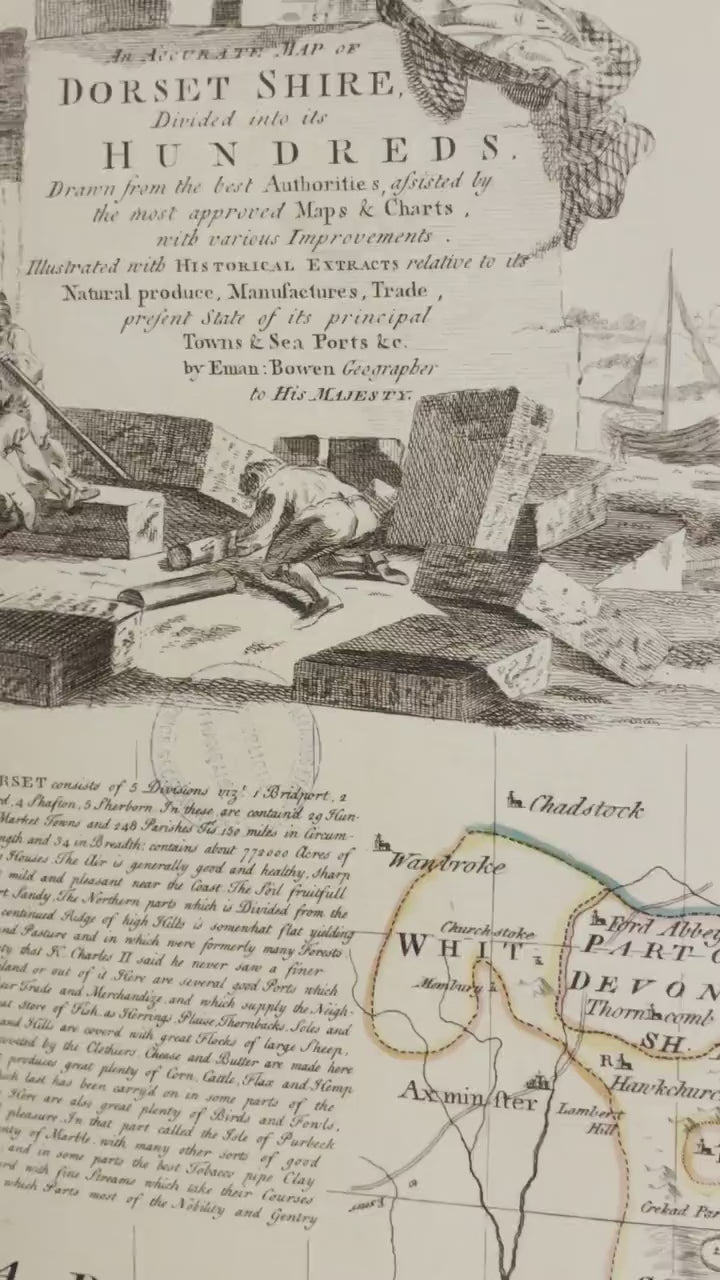 An Accurate Map of
DORSET SHIRE,
Divided into its
HUNDREDS.
Drawn from the best Authorities, aſsisted by
the most approved Maps & Charts,
with various Improvements.
Illustrated with HISTORICAL EXTRACTS relative to its
Natural produce, Manufactures, Trade,
preſent State of its principal
Towns & Sea Ports &c.
by Eman: Bowen Geographer
to His MAJESTY.
RSET consists of 5 Divisions viz.t 1 Bridport, 2
rd, 4 Shaſton, 5 Sherborn. In these are contain'd 29 Hun-
Market Towns and 248 Parishes Tis 150 miles in Circum-
ngth and 34 in Breadth: contains about 772000 Acres of
Houses. The Air is generally good and healthy, sharp
mild and pleasant near the Coast. The Soil fruitfull
rt Sandy. The Northern parts which is Divided from the
continued Ridge of high Hills is somewhat flat yielding
nd Pasture and in which were formerly many Forests
ty that K. Charles II said he never saw a finer
land or out of it Here are several good Ports which
eir Trade and Merchandize, and which supply the Neigh-
at store of Fish, as Herrings, Plaise, Thornbacks, Soles and
and Hills are coverd with great Flocks of large Sheep,
by the Clothiers. Cheese and Butter are made here
produces great plenty of Corn, Cattle, Flax and Hemp
ich last has been carry'd on in some parts of the
Here are also great plenty of Birds and Fowls,
pleasure. In that part called the Isle of Purbeck
nty of Marble, with many other sorts of good
and in some parts the best Tobacco pipe Clay
rd with fine Streams which take their Courses
which Parts most of the Nobility and Gentry
Chadstock
Wambroke
Church stoke
WHIT
Membury
Ford Abbey
PART O
DEVON
Thorncomb
SH.
R
Hawkchurc
Axminſter
Lambert
Hill
Crekad Por